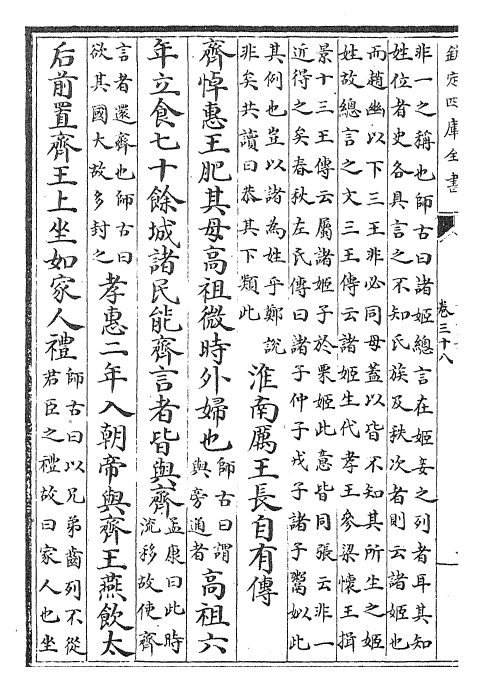 欽定四庫全書
卷三十八
非一之稱也師古曰諸姬總言在姬妾之列者耳其知
姓位者史各具言之不知氏族及秩次者則云諸姬也
而趙幽以下三王非必同母蓋以皆不知其所坐之姬
姓故總言之文三王傳云諸姬生代孝王參梁懷王揖
景十三王傳云屬諸姬子於栗姬此意皆同張云非一
近得之矣春秋左氏傳曰諸子仲子戎子諸子鬻姒此
其例也豈以諸為姓乎鄭說
非矣共讀曰恭其下類此
淮南厲王長自有傳
齊悼惠王肥其母高祖微時外婦也
師古曰謂
與旁通者
高祖六
年立食七十餘城諸民能齊言者皆與齊
孟康曰此時
流移故使齊
言者還齊也師古曰
欲其國大故多封之
孝惠二年入朝帝與齊王燕飲太
后前置齊王上坐如家人禮
師古曰以兄弟齒列不從
君臣之禮故曰家人也坐